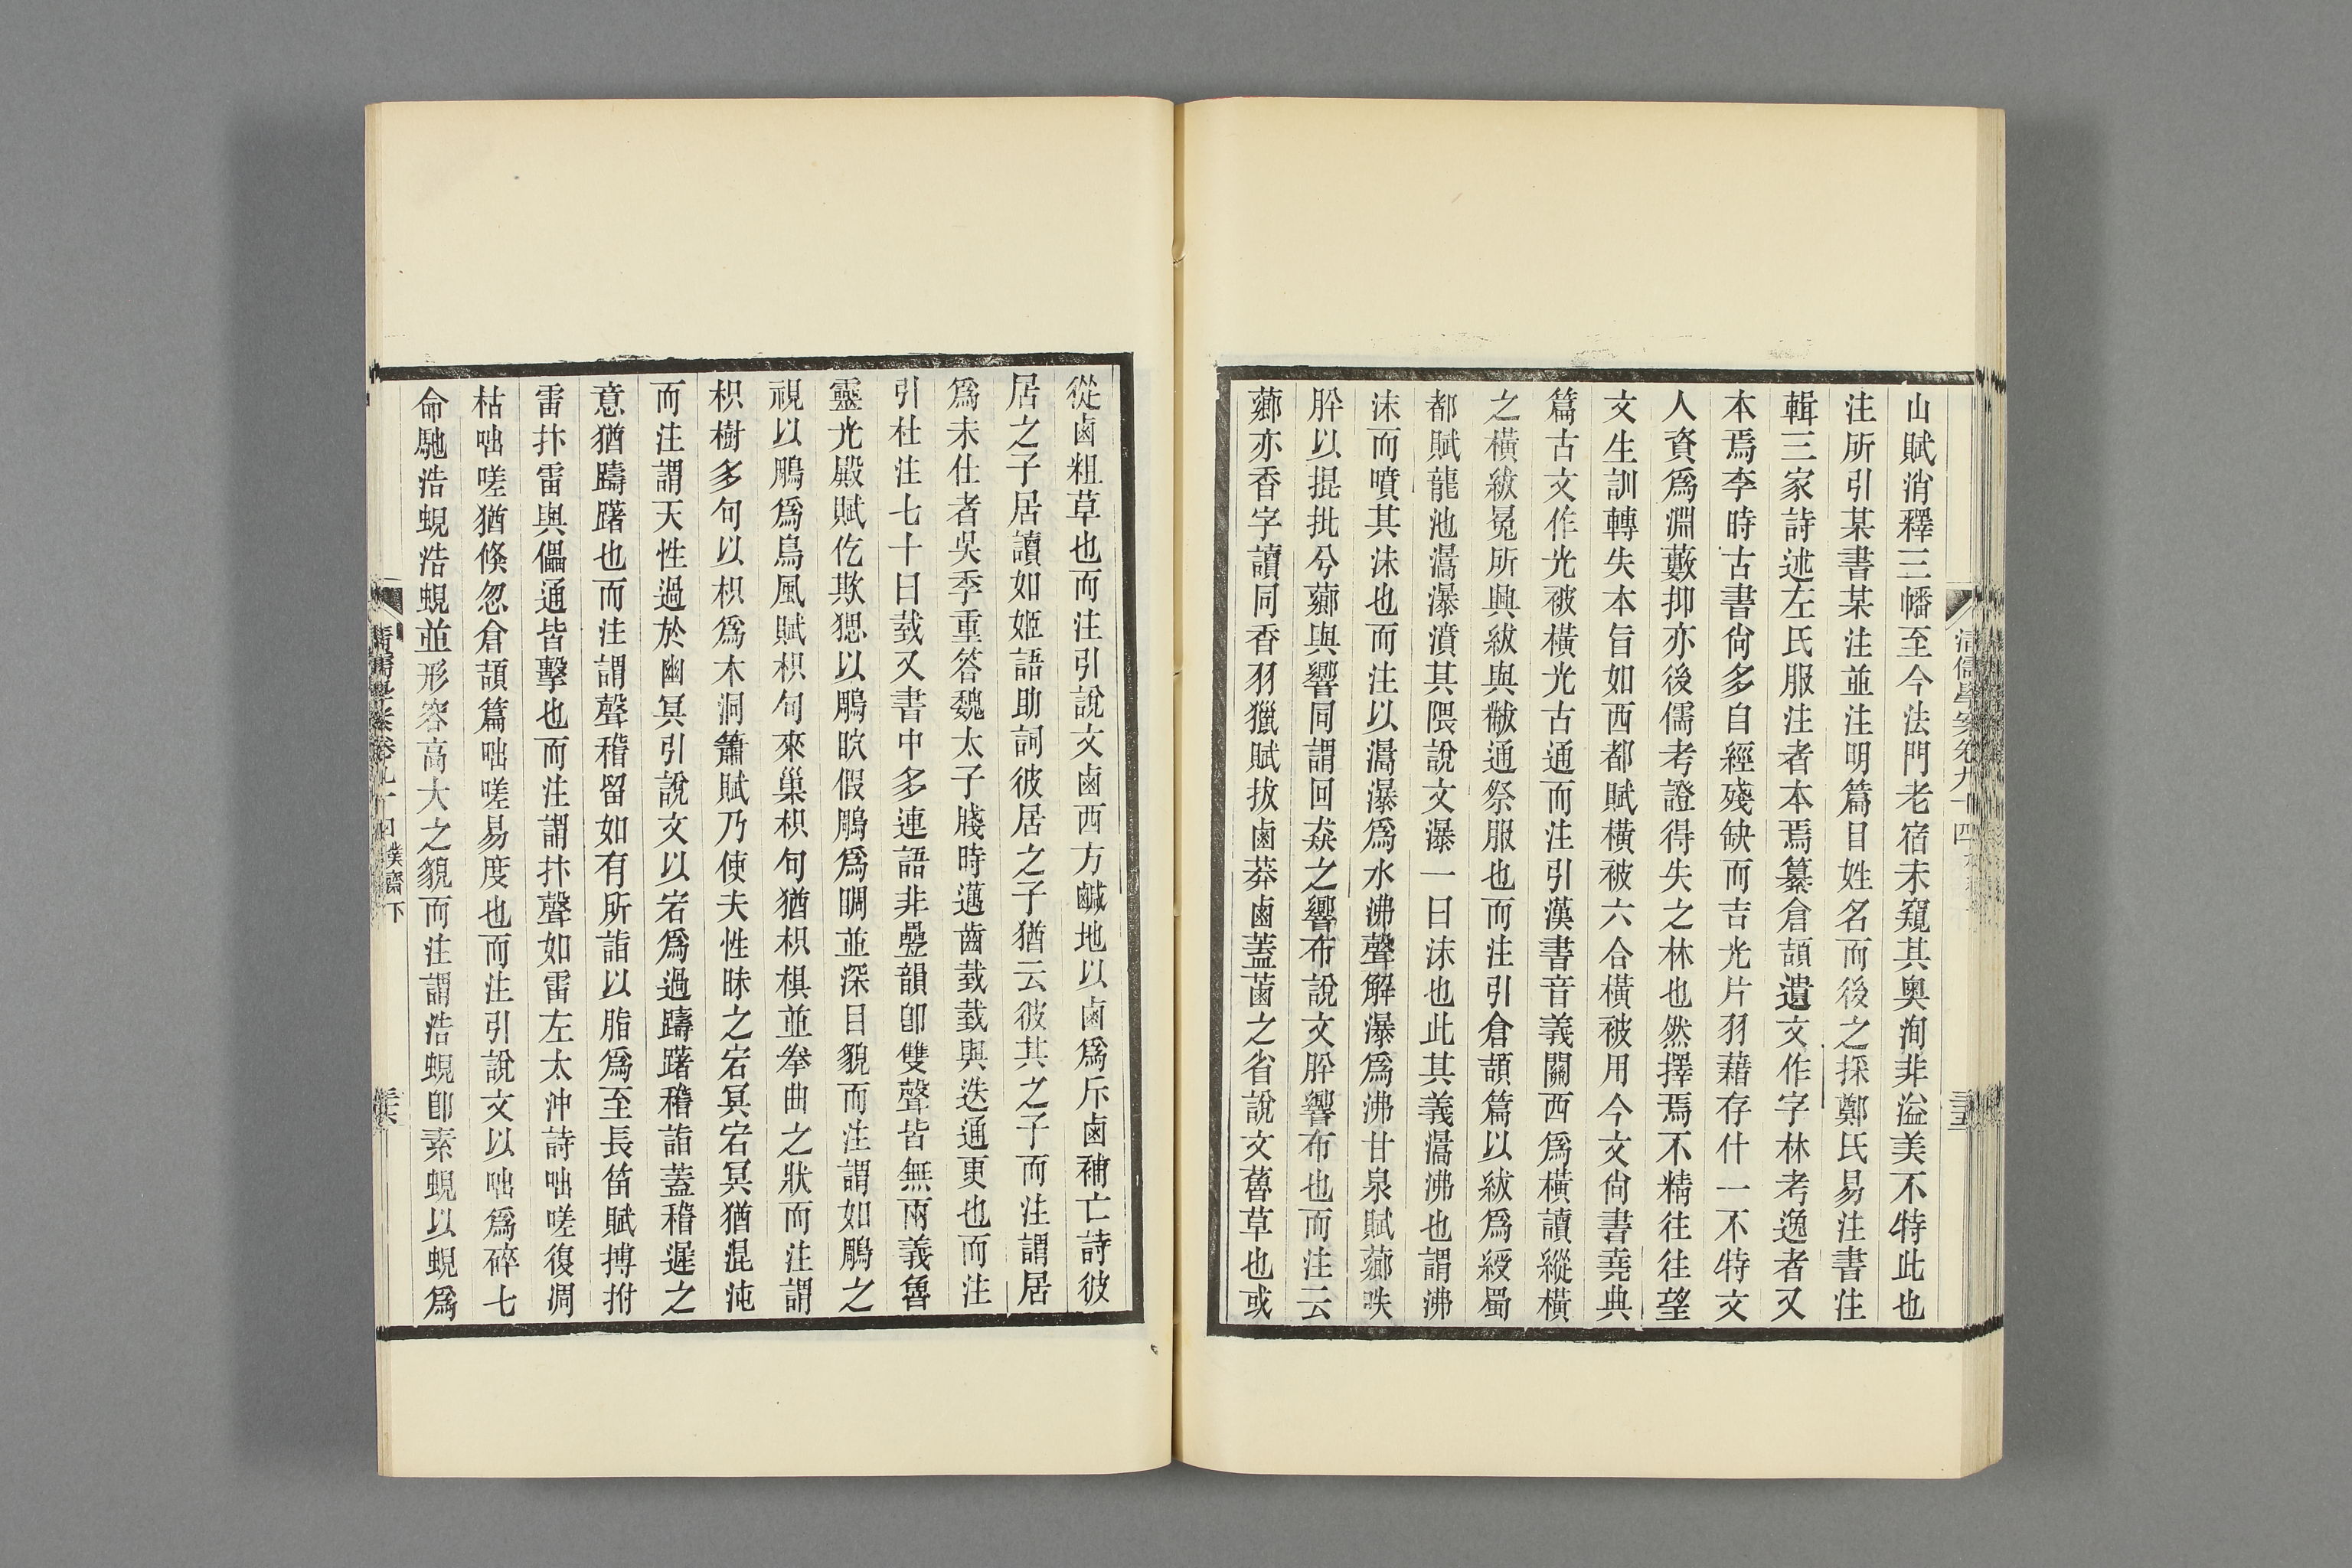 山賦消釋三幡至今法門老宿未窺其奧洵非溢美不特此也
注所引某書某注並注明篇目姓名而後之採鄭氏易注書注
輯三家詩述左氏服注者本焉纂倉頡遺文作字林考逸者又
本焉李時古書尙多自經殘缺而吉光片羽藉存什一不特文
人資爲淵藪抑亦後儒考證得失之林也然擇焉不精往往望
文生訓轉失本旨如西都賦橫被六合橫被用今文尙書堯典
篇古文作光被橫光古通而注引漢書音義關西爲橫讀縱橫
之橫紱冕所興紱與黻通祭服也而注引倉頡篇以紱爲綬蜀
都賦龍池瀥瀑濆其隈說文瀑一曰沫也此其義瀥沸也謂沸
沫而噴其沫也而注以瀥瀑爲水沸聲解瀑爲沸甘泉賦薌呹
肸以掍批兮薌與響同謂回猋之響布說文肸響布也而注云
薌亦香字讀同香羽獵賦拔鹵莽鹵蓋菌之省說文蓾草也或
清儒學案卷九十四
三五
從鹵粗草也而注引說文鹵西方鹹地以鹵爲斥鹵補亡詩彼
居之子居讀如姬語助詞彼居之子猶云彼其之子而注謂居
爲未仕者吳季重答魏太子牋時邁齒臷臷與迭通更也而注
引杜注七十曰臷又書中多連語非疊韻卽雙聲皆無兩義魯
靈光殿賦仡欺䰄以鵰㕟假鵰爲睭並深目貌而注謂如鵰之
視以鵰爲鳥風賦枳句來巢枳句猶枳椇並拳曲之狀而注謂
枳樹多句以枳爲木洞簫賦乃使夫性昧之宕冥宕冥猶混沌
而注謂天性過於幽冥引說文以宕爲過躊躇稽詣蓋稽遲之
意猶躊躇也而注謂聲稽留如有所詣以脂爲至長笛賦搏拊
雷抃雷與儡通皆擊也而注謂抃聲如雷左太沖詩咄嗟復凋
枯咄嗟猶倏忽倉頡篇咄嗟易度也而注引說文以咄爲碎七
命馳浩蜺浩蜺並形容高大之貌而注謂浩蜺卽素蜺以蜺爲
清儒學案卷九十四 樸齋下
三六